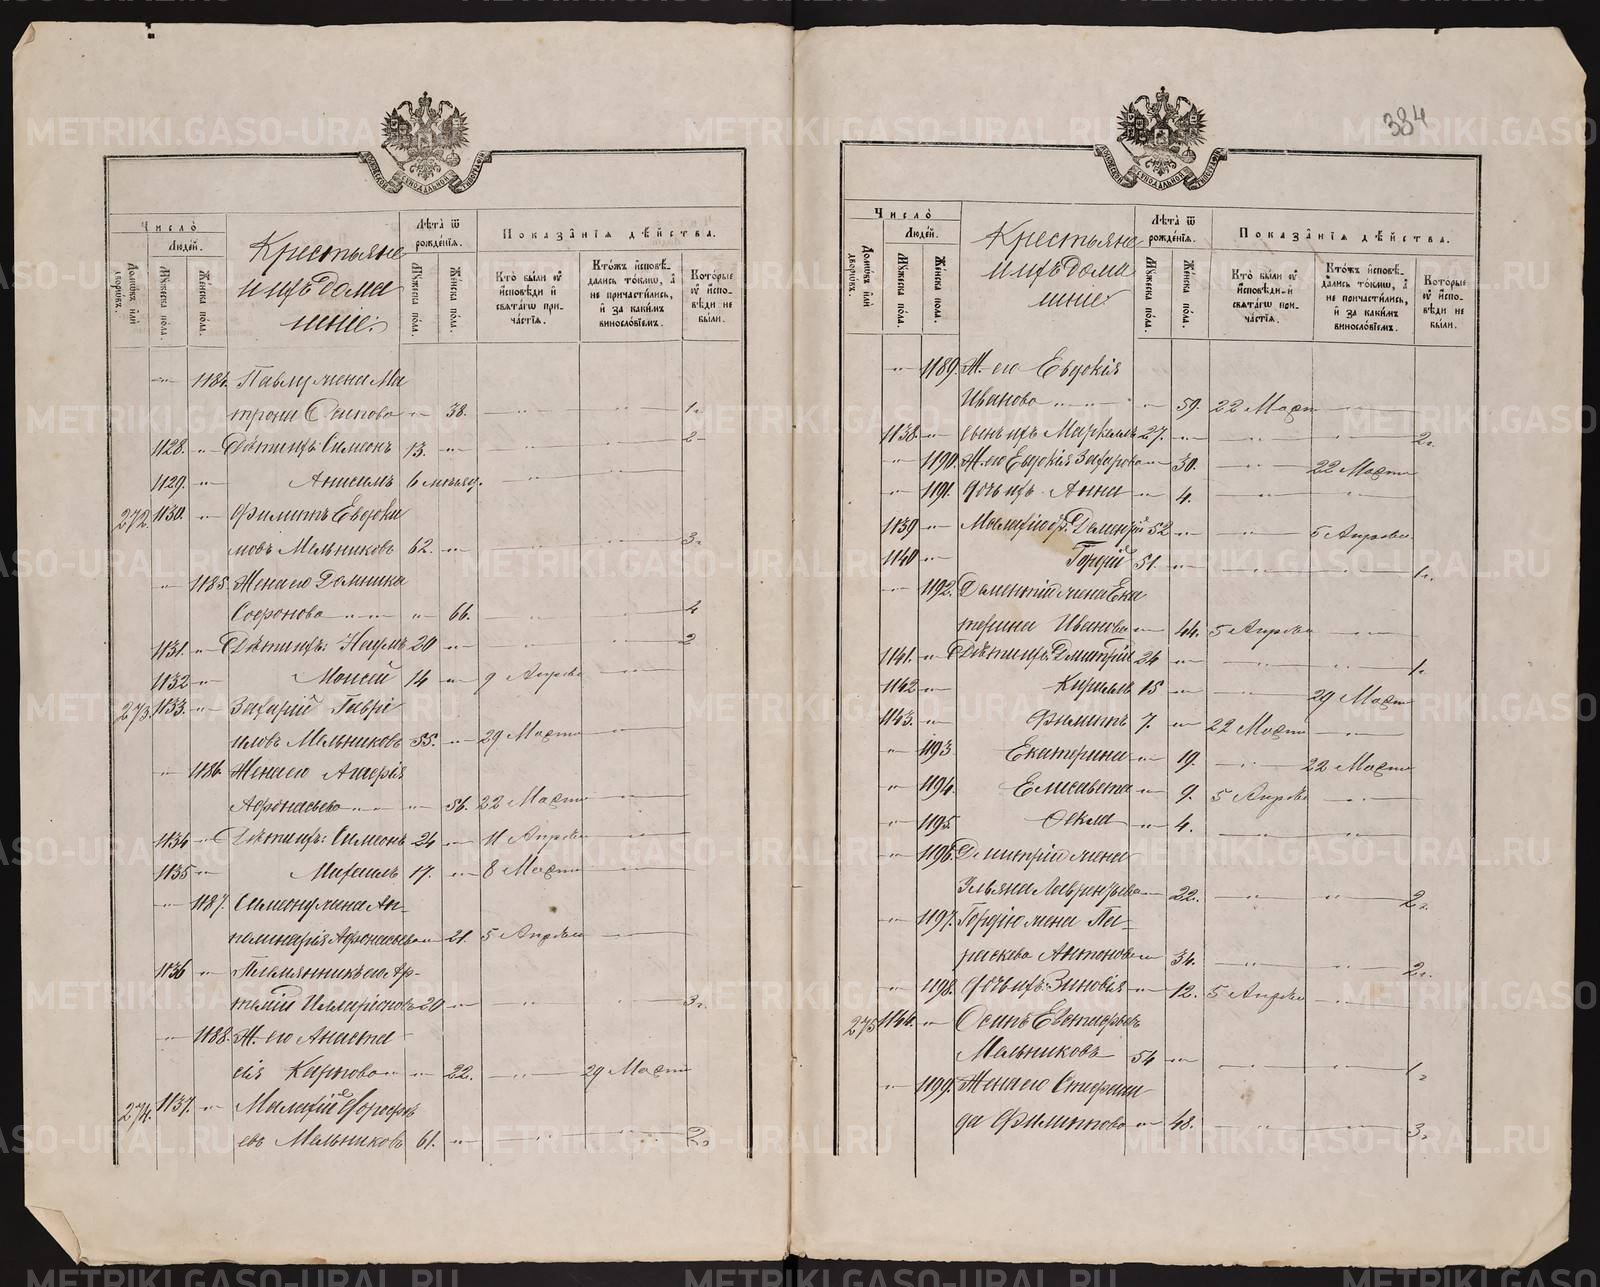 METRIKI.GASO-URAL.RU
384
Число̀
Людей.
Домѡвъ или̑ дворѡвъ.
Мꙋжеска пола.
Женска пола.
Крестьяне
и ихъ дома
шніе:
Лѣта ѿ рожденїѧ.
Мꙋжеска пола.
Женска пола.
Показанїѧ дѣйства.
Кто были оу исповѣди и свѧтагѡ причастїѧ.
Ктожъ исповѣдались токмѡ, а не причастились, и за какимъ винословїемъ.
Которые оу исповѣди не были.
-"- 1184. Павлу жена Ма
трона Осипова -"- 38. -"- -"- 1.
1128. -"- Дѣти ихъ: Симеонъ 13. -"- -"- 2
1129. -"- Анисимъ 6 мѣсяц.
272. 1130. -"- Филиппъ Евдоки
мовъ Мельниковъ 62. -"- -"- -"- 3.
-"- 1185. Жена его Домника
Софонова -"- -"- 66. -"- -"- 4
1131. -"- Дѣти ихъ: Наумъ 20 -"- -"- 2
1132 -"- Моисей 14 -"- 9 Апрѣля -"-
273. 1133. -"- Захарій Гаврі
иловъ Мельниковъ 55. -"- 29 Марта -"-
-"- 1186. Жена его
Афонасьева -"- -"- 56. 22 Марта -"-
1134 -"- Дѣти ихъ: Симеонъ 24 -"- 11 Апрѣля -"-
1135 -"- Михаилъ 17. -"- 8 Марта -"-
-"- 1187. Симеону жена Ап-
полинарія Афонасьева -"- 21. 5 Апрѣля -"-
1136 -"- Племянникъ его Ар-
темій Илларіоновъ 20 -"- -"- -"- 3.
-"- 1188. Ж. его Анаста
сія Карпова -"- 22. -"- 29 Марта
274. 1137. -"- Малахій Дорофѣ
евъ Мельниковъ 61. -"- -"- -"- 2.
Число̀
Людей.
Домѡвъ или̑ дворѡвъ.
Мꙋжеска пола.
Женска пола.
Крестьяне
и ихъ дома
шніе:
Лѣта ѿ рожденїѧ.
Мꙋжеска пола.
Женска пола.
Показанїѧ дѣйства.
Кто были оу исповѣди и свѧтагѡ причастїѧ.
Ктожъ исповѣдались токмѡ, а не причастились, и за какимъ винословїемъ.
Которые оу исповѣди не были.
-"- 1189. Ж. его Евдокія
Иванова -"- -"- 59. 22 Марта -"-
1138. -"- сынъ ихъ Маркеллъ 27. -"- -"- -"- 2.
-"- 1190. Ж. его Евдокія Захарова -"- 30. -"- 22 Марта
-"- 1191. дочь ихъ Анна -"- 4. -"- -"-
1139 -"- Малахію бр. Дометій 52 -"- -"- 5 Апрѣля
1140 -"- Гордій 51. -"- -"- -"- 1.
-"- 1192. Дометію жена Ека
терина Иванова -"- 44. 5 Апрѣля -"-
1141. -"- Дѣти ихъ: Дмитрій 24 -"- -"- 1.
1142 -"- Кириллъ 15 -"- -"- 29 Марта
1143. -"- Филиппъ 7. -"- 22 Марта -"-
-"- 1193 Екатерина -"- 19. -"- 22 Марта
-"- 1194. Елисавета -"- 9. 5 Апрѣля -"-
-"- 1195 Ѳекла -"- 4. -"- -"-
-"- 1196. Дмитрію жена
Ульяна Лаврентьева -"- 22. -"- -"- 2.
-"- 1197. Гордію жена Па-
раскева Антонова -"- 34. -"- -"- 2.
-"- 1198. дочь ихъ Зиновія -"- 12. 5 Апрѣля -"-
275 1144. -"- Осипъ Евстафьевъ
Мельниковъ 54 -"- -"- -"- 1.
-"- 1199. Жена его Стефани
да Филиппова -"- 48. -"- -"- 3.